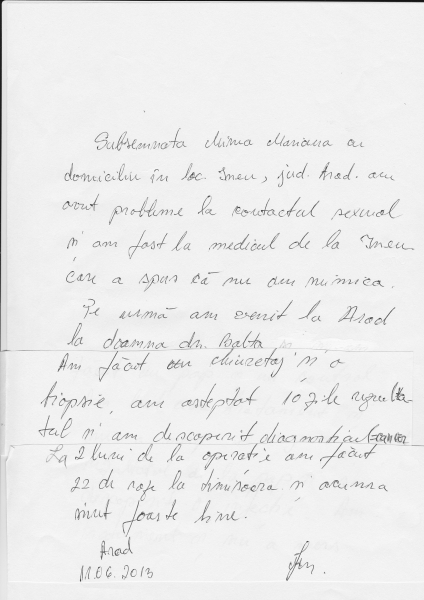 Subsemnata Mirea Mariana cu
domiciliu în loc. Ineu, jud. Arad. am
avut probleme la contactul sexual
și am fost la medicul de la Ineu
care a spus că nu am nimica.
Pe urmă am venit la Arad
la doamna dr. Balta
Am făcut un chiuretaj și o
biopsie, am asteptat 10 zile rezulta-
tul și am descoperit diagnosticul cancer
La 2 luni de la operatie am făcut
22 de raze la timisoara și acuma
sînt foarte bine.
Arad
11.06.2013